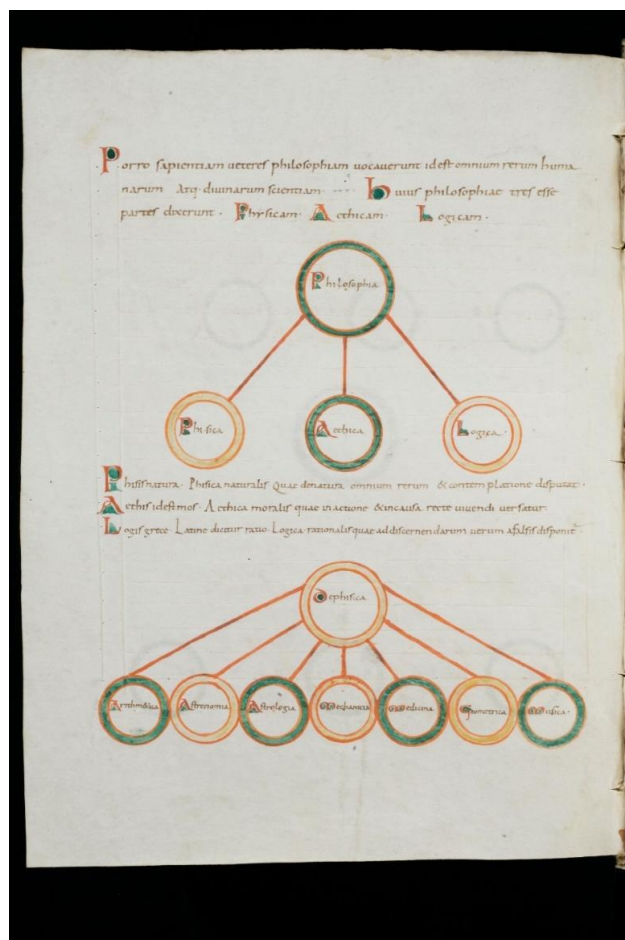 Porro sapientiam ueteres philosophiam uocauerunt idest omnium rerum huma
narum Atq; diuinarum scientiam Huius philosophiae tres esse
partes dixerunt · Physicam · Aethicam · Logicam ·
Philosophia
Phisica
Aethica
Logica ·
Phisis natura · Phisica naturalis Quae denatura omnium rerum & contemplatione disputat ·
Aethis idest mos · Aethica moralis quae in actione & incausa recte uiuendi uersatur
Logis grece · Latine dicitur ratio · Logica rationalis quae ad discernendarum uerum afalsis disponit
Dephisica
Arithmetica
Astronomia
Astrologia
Mechanica
Medicina
Geometrica
Musica ·